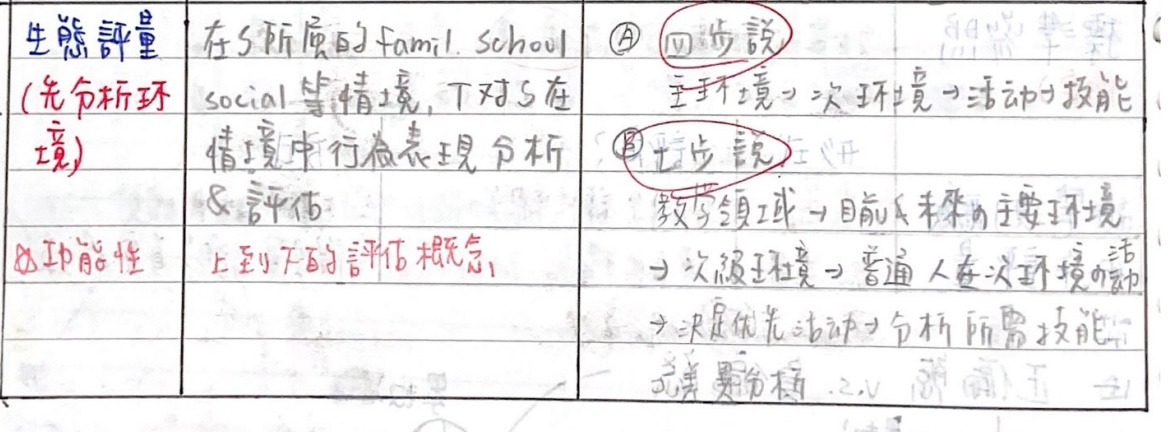 生態評量
(先分析环
境)
&功能性
在S所属的famil. school
social等情境,下对S在
情境中行為表現分析
&評估
上到下的評估概念,
Ⓐ 四步説
主环境→次环境→活动→技能
Ⓑ 七步説
教学領域→目前&未來の主要环境
→次級环境→普通人在次环境の活动
→决定优先活动→分析所需技能
差異分析